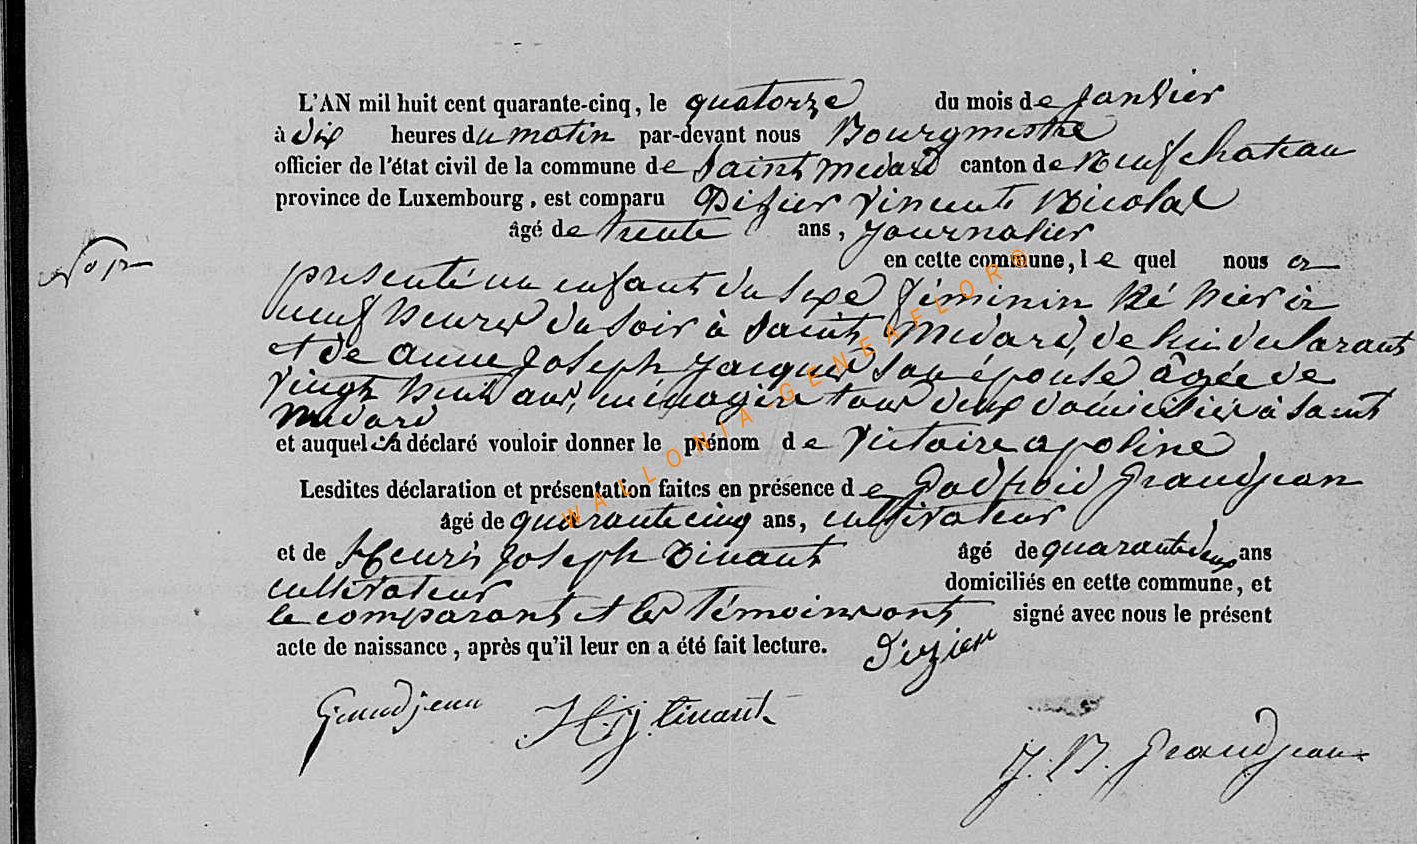 L'AN mil huit cent quarante-cinq, le quatorze du mois de Janvier
à dix heures du matin par-devant nous Bourgmestre
officier de l'état civil de la commune de Saint Medard canton de Neufchateau
province de Luxembourg, est comparu Dizier Vincent Nicolas
âgé de trente ans, Journalier
en cette commune, le quel nous a
presenté un enfant du sexe féminin Né hier à
neuf heures du soir à Saint Medard, de lui declarant
et de anne Joseph Jacques son épouse âgée de
vingt huit ans, ménagère tous deux domiciliés à Saint
Medard
et auquel il a déclaré vouloir donner le prénom de Victoire apoline
Lesdites déclaration et présentation faites en présence de Godfroid Grandjean
âgé de quarante cinq ans, cultivateur
et de Henri Joseph Tinant âgé de quarante deux ans
cultivateur domiciliés en cette commune, et
le comparant et les Témoins ont signé avec nous le présent
acte de naissance, après qu'il leur en a été fait lecture. Dizier
Grandjean H. j. tinant
J. B. Grandjean
WALLONIA-GENEAFLOR®